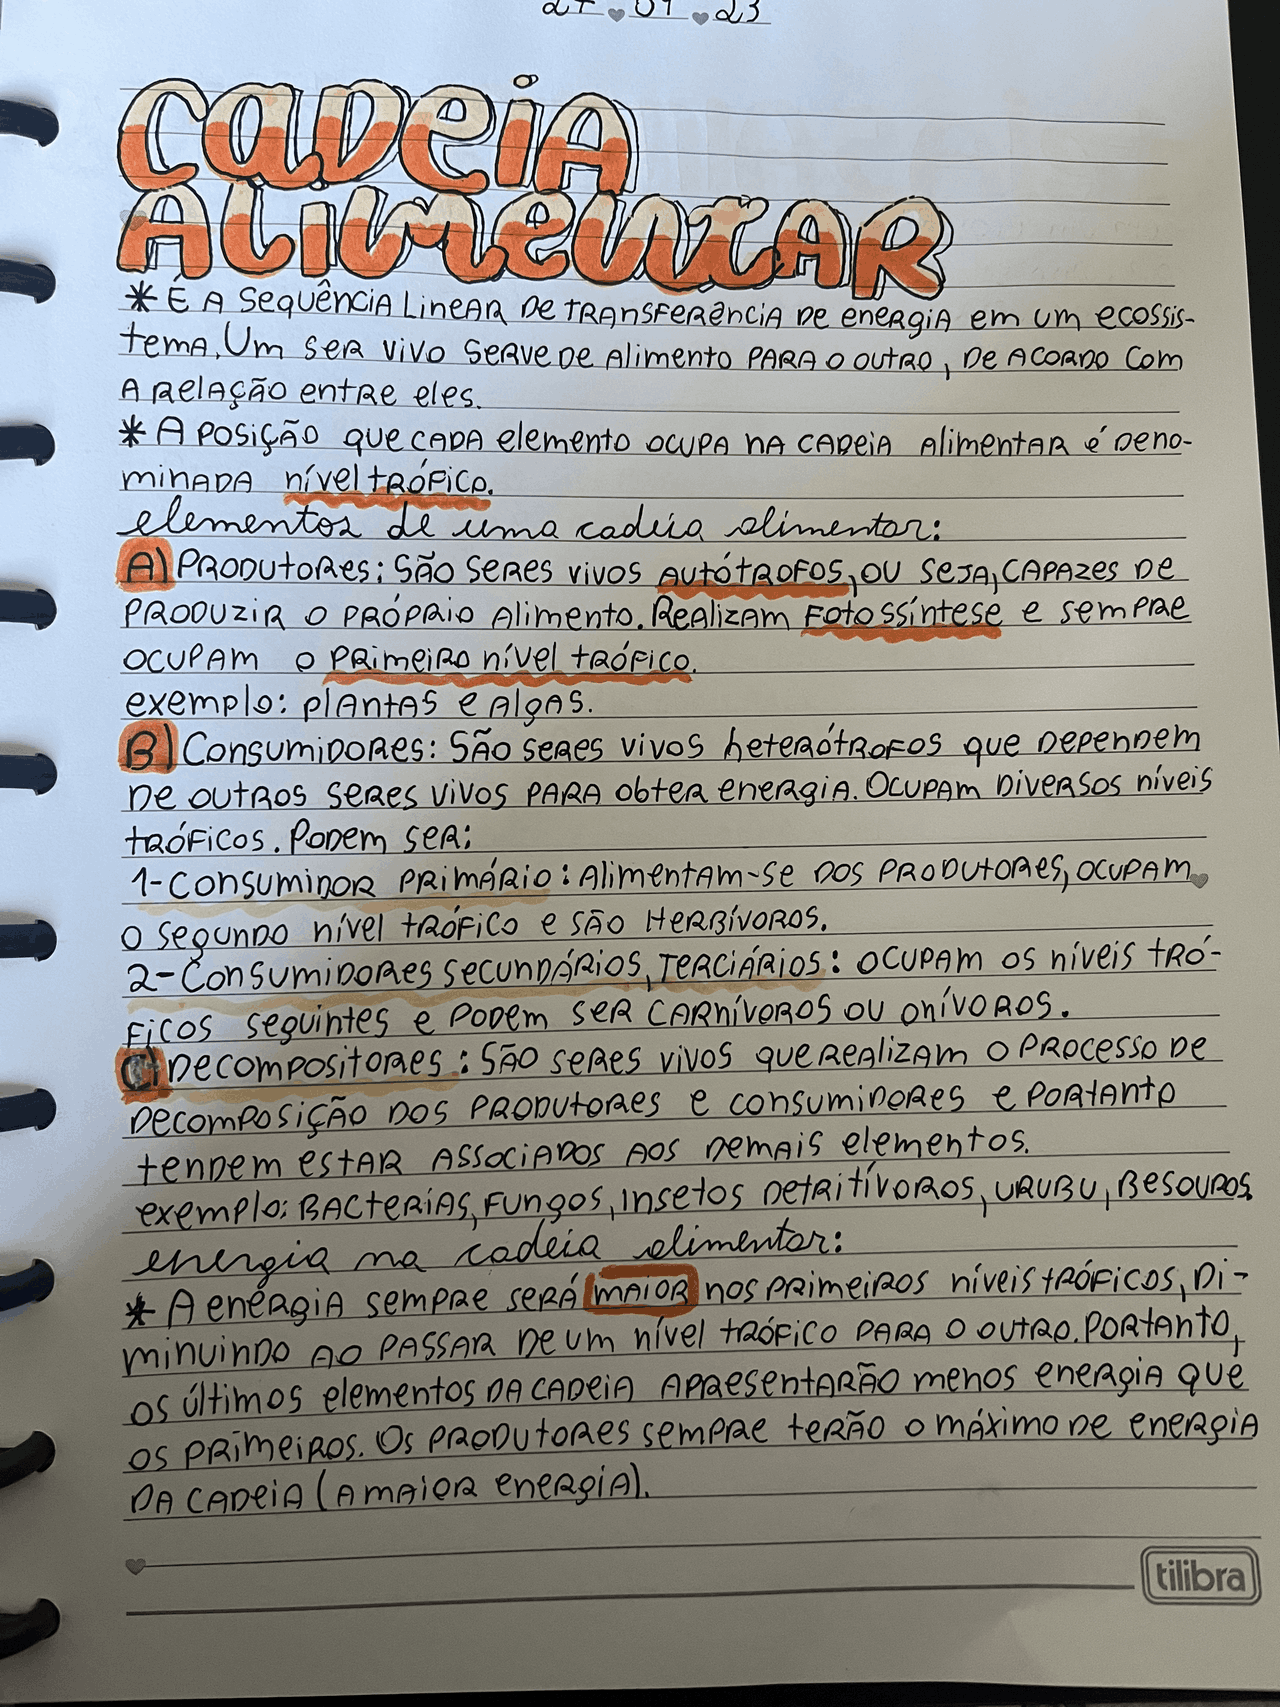 27 . 01 . 23
CADEIA
ALIMENTAR
* É A SEQUÊNCIA LINEAR DE TRANSFERÊNCIA DE ENERGIA EM UM ECOSSIS-
TEMA. UM SER VIVO SERVE DE ALIMENTO PARA O OUTRO, DE ACORDO COM
A RELAÇÃO ENTRE ELES.
* A POSIÇÃO QUE CADA ELEMENTO OCUPA NA CADEIA ALIMENTAR É DENO-
MINADA NÍVEL TRÓFICO.
elementos de uma cadeia alimentar:
A) PRODUTORES: SÃO SERES VIVOS AUTÓTROFOS, OU SEJA, CAPAZES DE
PRODUZIR O PRÓPRIO ALIMENTO. REALIZAM FOTOSSÍNTESE E SEMPRE
OCUPAM O PRIMEIRO NÍVEL TRÓFICO.
EXEMPLO: PLANTAS E ALGAS.
B) CONSUMIDORES: SÃO SERES VIVOS HETERÓTROFOS QUE DEPENDEM
DE OUTROS SERES VIVOS PARA OBTER ENERGIA. OCUPAM DIVERSOS NÍVEIS
TRÓFICOS. PODEM SER:
1- CONSUMIDOR PRIMÁRIO: ALIMENTAM-SE DOS PRODUTORES, OCUPAM
O SEGUNDO NÍVEL TRÓFICO E SÃO HERBÍVOROS.
2- CONSUMIDORES SECUNDÁRIOS, TERCIÁRIOS: OCUPAM OS NÍVEIS TRÓ-
FICOS SEGUINTES E PODEM SER CARNÍVOROS OU ONÍVOROS.
C) DECOMPOSITORES: SÃO SERES VIVOS QUE REALIZAM O PROCESSO DE
DECOMPOSIÇÃO DOS PRODUTORES E CONSUMIDORES E PORTANTO
TENDEM ESTAR ASSOCIADOS AOS DEMAIS ELEMENTOS.
EXEMPLO: BACTERÍAS, FUNGOS, INSETOS DETRITÍVOROS, URUBU, BESOUROS.
energia na cadeia alimentar:
* A ENERGIA SEMPRE SERÁ MAIOR NOS PRIMEIROS NÍVEIS TRÓFICOS, DI-
MINUINDO AO PASSAR DE UM NÍVEL TRÓFICO PARA O OUTRO. PORTANTO,
OS ÚLTIMOS ELEMENTOS DA CADEIA APRESENTARÃO MENOS ENERGIA QUE
OS PRIMEIROS. OS PRODUTORES SEMPRE TERÃO O MÁXIMO DE ENERGIA
DA CADEIA (A MAIOR ENERGIA).
tilibra